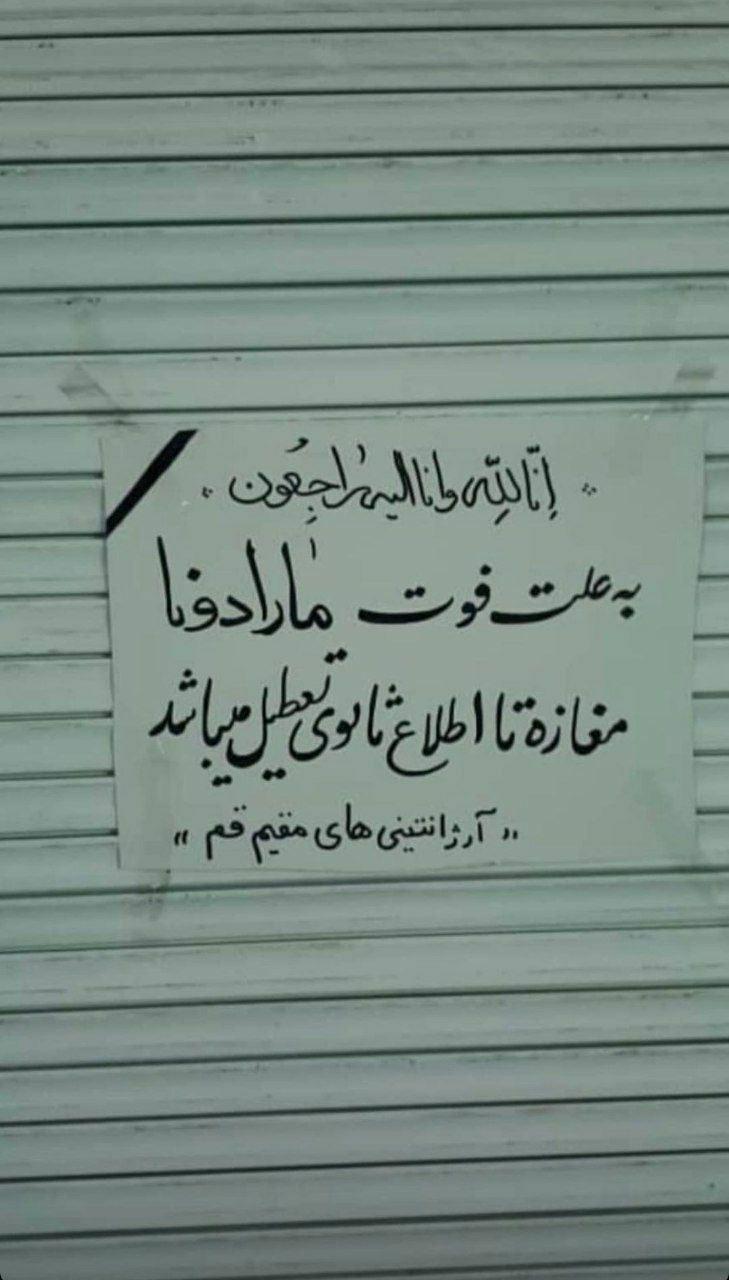 إنّا للّه و انا الیه راجعون
به علت فوت مارادونا
مغازه تا اطلاع ثانوی تعطیل میباشد
" آرژانتینی های مقیم قم "